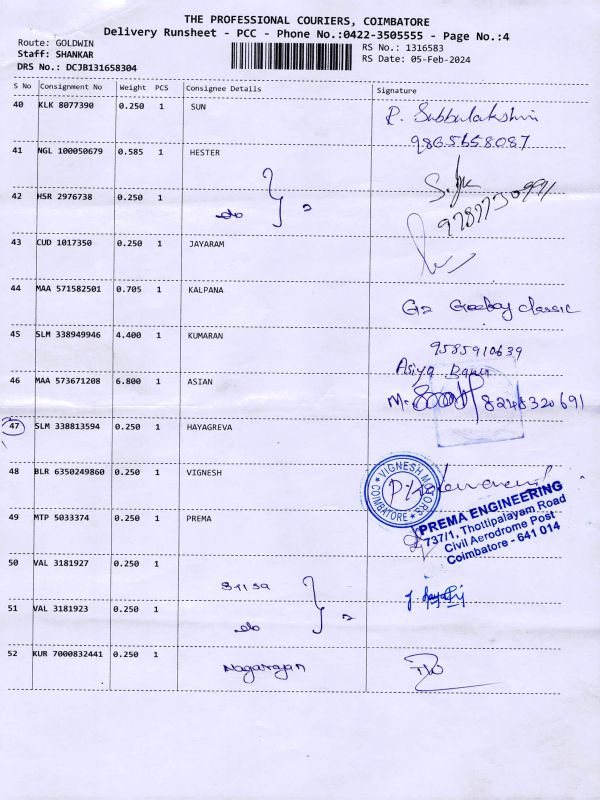 THE PROFESSIONAL COURIERS, COIMBATORE
Delivery Runsheet - PCC - Phone No.:0422-3505555 - Page No.:4
Route: GOLDWIN
Staff: SHANKAR
DRS No.: DCJB131658304
RS No.: 1316583
RS Date: 05-Feb-2024
S No Consignment No Weight PCS Consignee Details Signature
40 KLK 8077390 0.250 1 SUN R. Subbulakshmi
9865658087
41 NGL 100050679 0.585 1 HESTER
42 HSR 2976738 0.250 1 do 2
9787730991
43 CUD 1017350 0.250 1 JAYARAM
44 MAA 571582501 0.705 1 KALPANA classic
45 SLM 338949946 4.400 1 KUMARAN 9585910639
Asiya Banu
46 MAA 573671208 6.800 1 ASIAN 8248320691
47 SLM 338813594 0.250 1 HAYAGREVA
48 BLR 6350249860 0.250 1 VIGNESH
VIGNESH MOTORS
COIMBATORE
49 MTP 5033374 0.250 1 PREMA
PREMA ENGINEERING
737/1, Thottipalayam Road
Civil Aerodrome Post
Coimbatore - 641 014
50 VAL 3181927 0.250 1
51 VAL 3181923 0.250 1 do 2
52 KUR 7000832441 0.250 1 Nagarajan